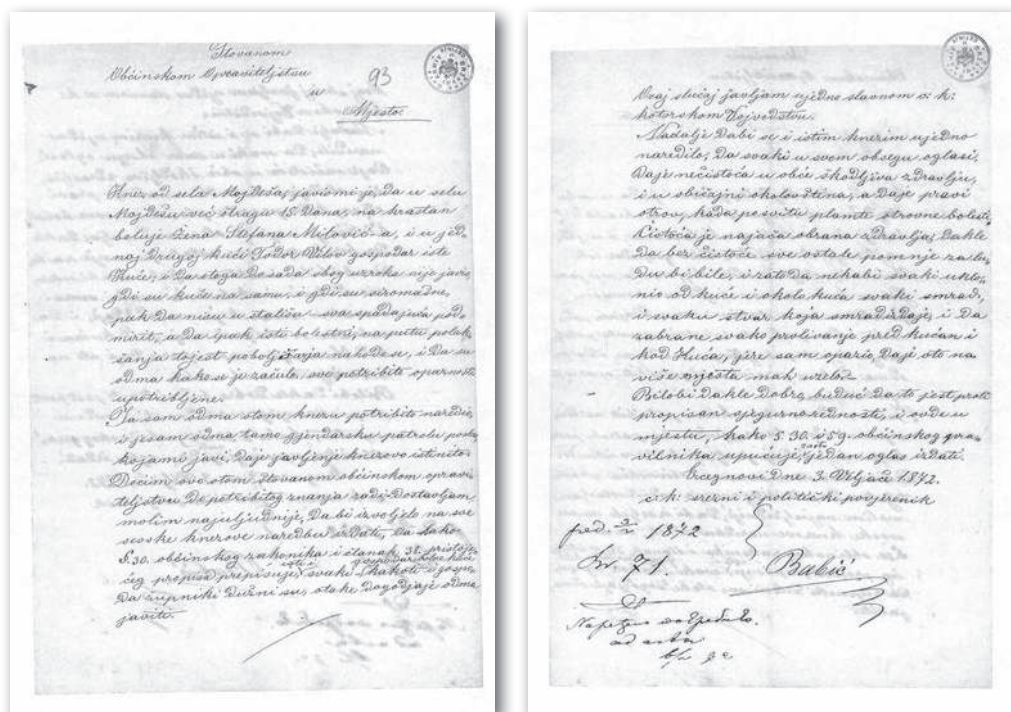 Štovanom
Občinskom Upraviteljstvu
u
Mjestoc
93
Knez od sela Mojdeša, javio mi je, da u selu
Mojdešu već straga 15. dana, na krastan
boluje žena Stefana Milović-a, i u jed,
noj drugoj kući Todor Vilov gospodar iste
kuće, i da stoga do sada zbog uzroka nije javio,
gdi su kuće na samu, i gdi su siromašne,
puk da nisu u stališu sva spadajuća pod,
mirit, a da ipak iste bolestni, na putu polak,
šanja tojest poboljšanja nahode se, i da su
odma kako se je začulo, sve potribite opaznosti
upotribljene.
Ja sam odma otom knezu potribito naredio,
i jesam odma tamo gjendarsku patrolu poslo
koja mi javi, da je javljenje knezovo istinito.
Dočim sve otom Štovanom občinskom upravi,
teljstvu do potribitog znanja radi dostavljam
molim najuljudnije, da bi izvoljelo na sve
seoske knezove naredbu izdati, da kako
§. 30. občinskog zakonika i članak 38. pristoje,
ćeg propisa prepisuje, svaki gospodar bolne kuće
kakoti i gospo,
da župniki dužni su, otake dogodjaje odma
javiti.
Ovaj slučaj javljam ujedno slavnom c: k:
kotorskom Vojvodstvu.
Nadalje da bi se i istim knezim ujedno
naredilo, da svaki u svom obsegu oglasi,
da je nečistoća u obće škodljiva zdravlju,
i u običajni okolovština, a da je pravi
otrov, kada po svitu plamte otrovne bolesti,
Čistoća je najača obrana zdravlja, dakle
da bez čistoće sve ostale pomnje zalu,
du bi bile, i zato da nekabi svaki uklo,
nio od kuće i okolo kuća svaki smrad,
i svaku stvar koja smrad daje, i da
zabrane svako prolivanje pred kućan i
kod kuća, jere sam opazio, da je oto na
više mjesta mah uzelo.
Bilo bi dakle dobro, buduć da to jest proti
propisan sjegurnorednosti, i ovdje u
mjestu, kako §. 30. i 59. občinskog pra
vilnika upućuje, jedan oglas izdati.
Erceznovi dne 3. Veljače 1872.
c: k: srezni i politički povjerenik
Babić
pred. 3/2 1872
Br. 71.